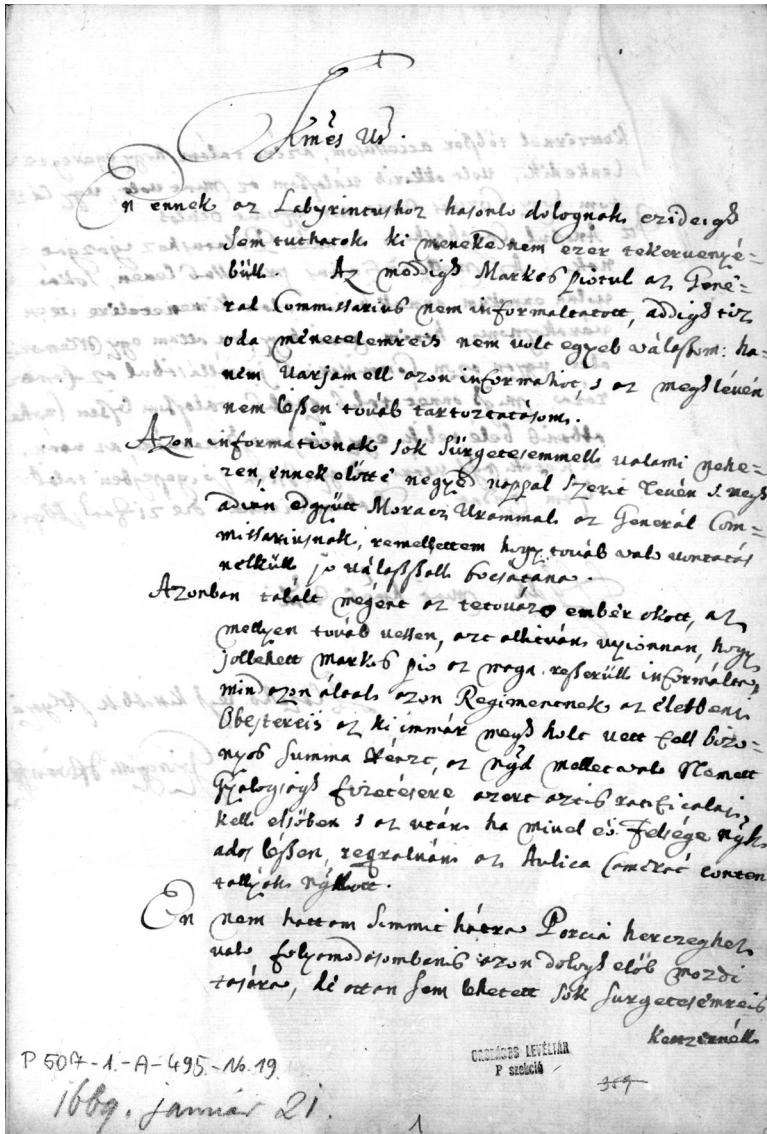 Kmes Ur.
En ennek az Labyrintushoz hasonlo dolognak ezideigh
sem tuthatok ki menekednem ezer tekervenyé-
búll. Az móddigh Markes piotul az Gene-
ral Commissarius nem informaltatott, addigh tiz
oda ménetelemreis nem volt egyeb válaszom: ha-
ném varjam ell azon informatiot, s az megh lévén
nem leszen továb tartoztatásom.
Azon informationak sok sürgetesemmell valami nehe-
zen, ennek elötté negyed nappal szerit tevén s. megh
adván edgyütt Moracz Urammal az Generál Com-
missariusnak, remellettem hogy továb valo vontatás
nelküll jo válaszszall bocsátana.
Azonban talált megént az tetovázo ember okott, az
mellyen továb vessen, azt alhitván ujionnan, hogy
jollehett markes pio az maga reszerüll informálta,
mind azon által azon Regimentnek az életbeni
Obestereis az ki immár megh holt vett fell bizo-
nyos summa pénzt, az ngd mellet valo Nemett
Gyalogsagh fizetésere azert aztis ratificalni
kell elsőben s az után ha mivel eö Felsége ngk
ados lészen, az Aulica Camerát conten
tallyak ngdott.
En nem hattam semmit hátra Porcia herczeghez
valo folyamodasombanis azon dologh elöb mozdi
tasára, de ottan sem lehetett sok surgetesemreis
P 507-1.-A-495.-No. 19.
ORSZÁGOS LEVÉLTÁR
P szekció
369
1669. január 21.
1